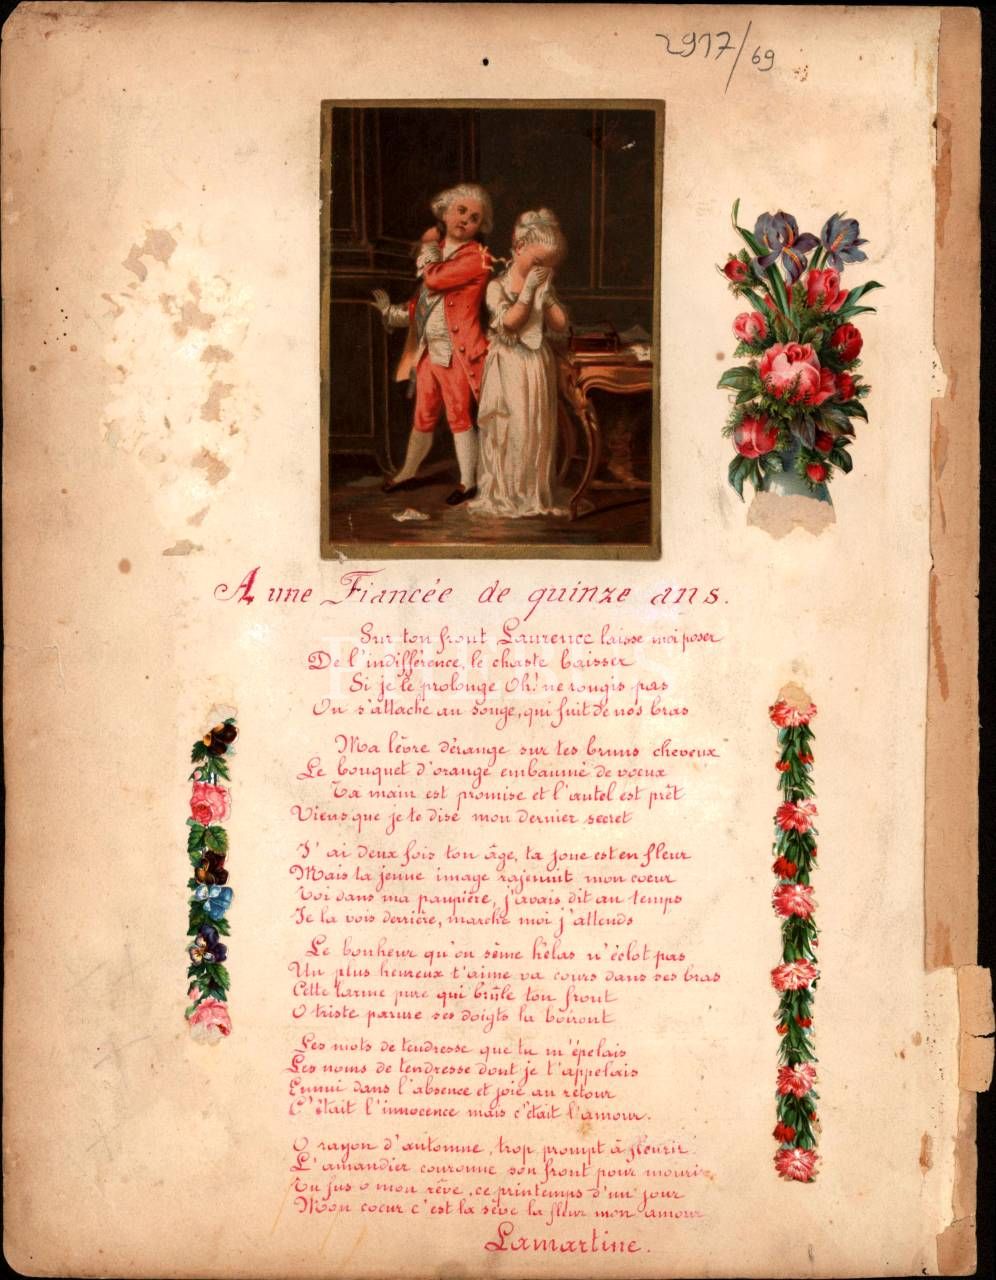 2917/69
A une Fiancée de quinze ans.
Sur ton front Laurence laisse moi poser
De l'indifférence, le chaste baisser
Si je le prolonge Oh! ne rougis pas
On s'attache au songe, qui fuit de nos bras
Ma lèvre dérange sur tes bruns cheveux
Le bouquet d'orange embaumé de voeux
Ta main est promise et l'autel est prêt
Viens que je te dise mon dernier secret
J'ai deux fois ton âge, ta joue est en fleur
Mais ta jeune image rajeunit mon coeur
Toi dans ma paupière, j'avais dit au temps
Je la vois derrière, marche moi j'attends
Le bonheur qu'on sème hélas n'éclot pas
Un plus heureux t'aime va cours dans ses bras
Cette larme pure qui brûle ton front
O triste parure ses doigts la boiront
Les mots de tendresse que tu m'épelais
Les noms de tendresse dont je t'appelais
Ennui dans l'absence et joie au retour
C'était l'innocence mais c'était l'amour.
O rayon d'automne, trop prompt à fleurir
L'amandier couronne son front pour mourir
Tu fus o mon rêve, ce printemps d'un jour
Mon coeur c'est la sève la fleur mon amour
Lamartine.